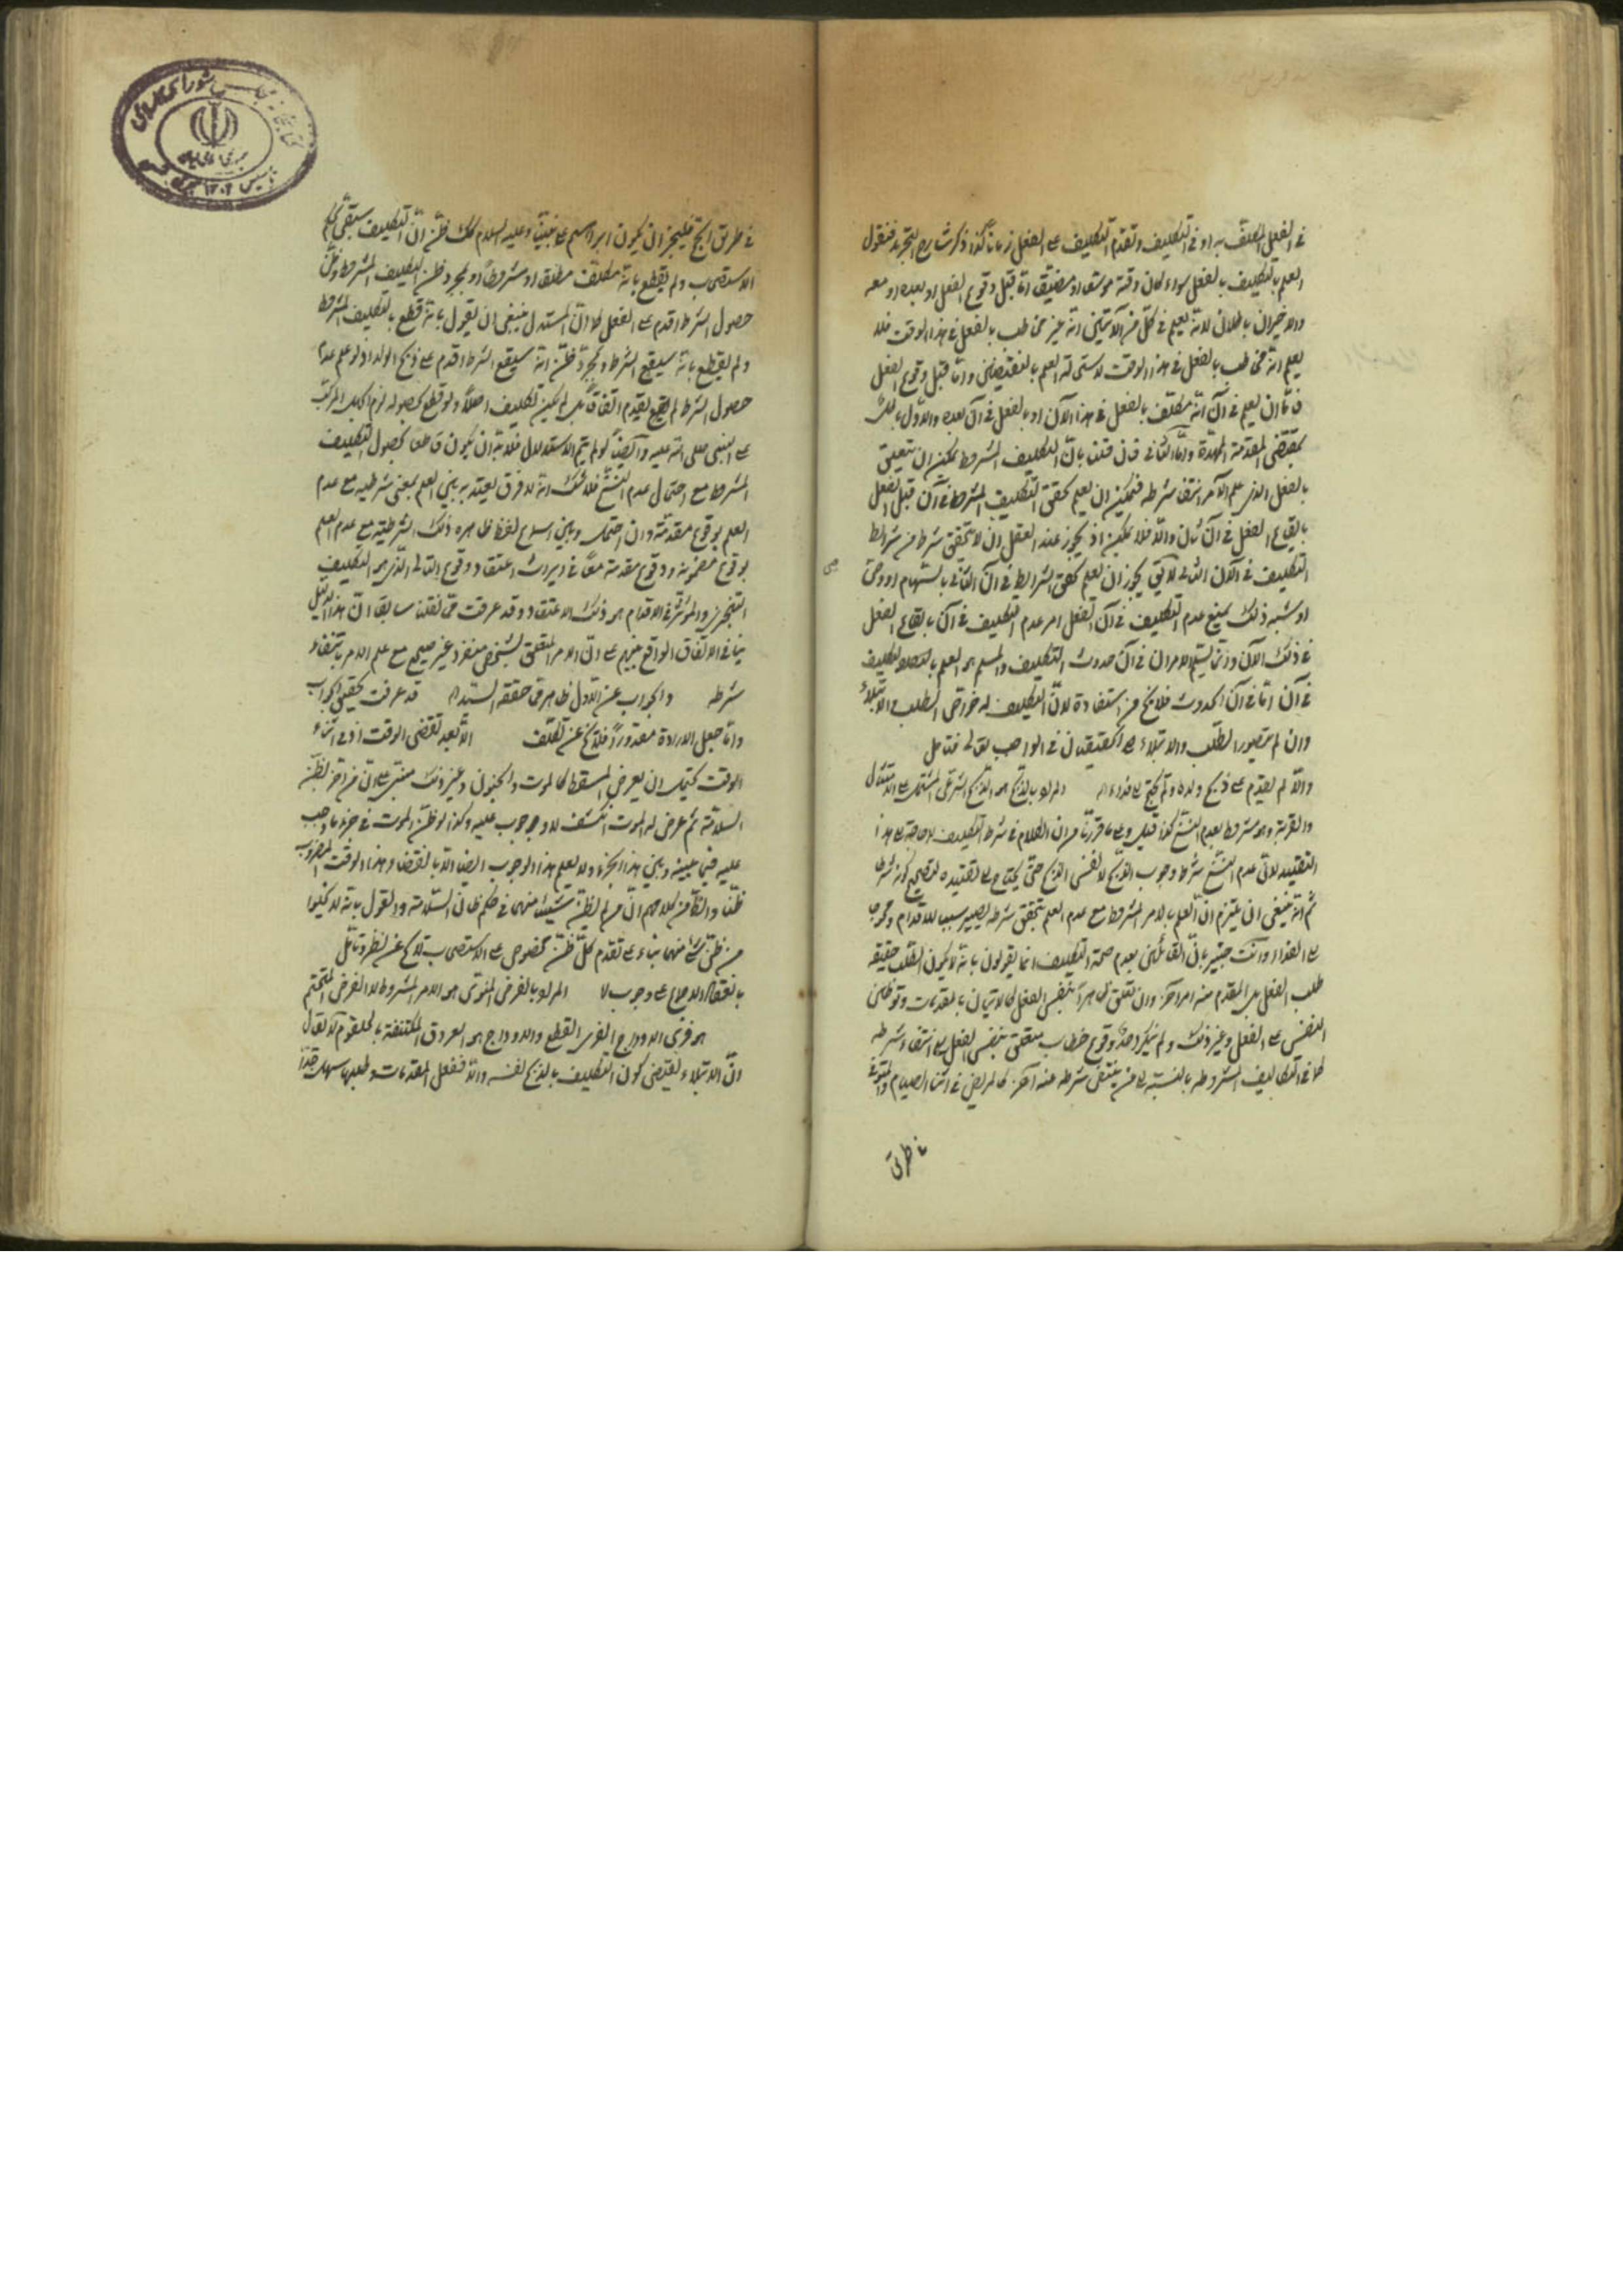 في الفعل المكلف به او في التكليف وتقدم التكليف على الفعل زمانا كذا ذكر شارح التجريد فنقول
العلم بالتكليف بالفعل سواء كان وقته موسعا او مضيقا اما قبل وقوع الفعل او بعده او معه
والاخيران باطلان لانه يعلم في كل من الآنين انه غير مخاطب بالفعل في هذا الوقت فلا
يعلم انه مخاطب بالفعل في هذا الوقت لاستحالة العلم بالنقيضين واما قبل وقوع الفعل
فاما ان يعلم في آن انه مكلف بالفعل في هذا الآن او بالفعل في آن بعده والاول باطل
بمقتضى المقدمة الممهدة واما الثاني فان قلنا بان التكليف المشروط يمكن ان يتعلق
بالفعل الذي علم الآمر انتفاء شرطه فيمكن ان يعلم تحقق التكليف المشروط في آن قبل الفعل
بايقاع الفعل في آن ثان والا فلا يمكن اذ يجوز عند العقل ان لا يتحقق شرط من شرائط
التكليف في الآن الثاني لا يقال يجوز ان يعلم تحقق الشرايط في الآن الثاني بالهام او وحي
او شبه ذلك يمنع عدم التكليف في آن الفعل امر عدم التكليف في آن بايقاع الفعل
في ذلك الآن وانما يسلم الامران في آن حدوث التكليف والمسلم هو العلم بالتكليف
في آن اما في آن الحدوث فلا يخ من استفادة لان التكليف له خواص الطلب والابتلاء
وان لم يتصور الطلب والابتلاء الحقيقيان في الواجب تعالى فتامل
والا لم يقدم على ذبح ولده ولم يحتج الى فداء اه المراد بالذبح هو الذبح الشرعي المشتمل على الامتثال
والقربة وهو مشروط بعدم النسخ كذا قيل وعلى ما قررنا من ان الكلام في شرط التكليف لا حاجة الى هذا
التقييد لان عدم النسخ شرط وجوب الذبح لا لنفس الذبح حتى يحتاج الى تقييده لتصحيح كونه شرطا
ثم انه ينبغي ان يلتزم ان العلم بالامر المشروط مع عدم العلم بتحقق شرطه يصير سببا للاقدام ومحوجا
الى الفداء وانت خبير بان القائلين بعدم صحة التكليف انما يقولون بانه لا يكون الطلب حقيقة
طلب الفعل بل المقدم منه امر آخر وان تعلق ظاهرا بنفس الفعل كالاتيان بالمقدمات وتوطين
النفس على الفعل وغير ذلك ولم ينكر احد وقوع خطاب متعلق بنفس الفعل مع انتفاء شرطه
كما في التكاليف المشروطة بالنسبة الى من ينتفي شرطه عنه آخر كالمريض في اثناء الصيام والمتوفى
في طريق
في طريق الحج فليجز ان يكون ابراهيم على نبينا وعليه السلام كذلك ظن ان التكليف سيبقى بحكم
الاستصحاب ولم يقطع بانه مكلف مطلقا او مشروطا او بمجرد ظن التكليف المشروط وظن
حصول الشرط اقدم على الفعل كما ان المستدل ينبغي ان يقول بانه قطع بالتكليف المشروط
ولم يقطع بانه سيقع الشرط وبمجرد ظن انه سيقع الشرط اقدم على ذبح الولد اذ لو علم عدم
حصول الشرط لم يقدم اتفاقا بل لم يكن تكليف اصلا ولو قطع بحصوله لزم الجهل المركب
على النبي صلى الله عليه وآله وايضا لو لم يتم الاستدلال فلا بد ان يكون قاطعا بحصول التكليف
المشروط مع احتمال عدم النسخ فلا شك انه لا فرق يعتد به بين العلم بمعنى شرطية مع عدم
العلم بوقوع مقدمه وان احتمل وبين سماع لفظ ظاهره ذلك الشرطية مع عدم العلم
بوقوع مضمونه ووقوع مقدمه معا في ايراث اعتقاد وقوع التالي الذي هو التكليف
التنجيزي والمؤثر في الاقدام هو ذلك الاعتقاد وقد عرفت مما نقلنا سابقا ان هذا الدليل
ينافي الاتفاق الواقع منهم على ان الامر المتعلق بشخص منفرد غير صحيح مع علم الآمر بانتفاء
شرطه والجواب عن الاول ظاهر مما حققه السيد اه قد عرفت تحقيق الجواب
واما جعل الارادة مقدورا فلا يخ عن تكلف الا بعد تقضي الوقت اذ في اثناء
الوقت يحتمل ان يعرض المسقط كالموت والجنون وغير ذلك مبني على ان من آخر لظن
السلامة ثم عرض له الموت انكشف ان لا وجوب عليه وكذا لو ظن الموت في جزء ما وجب
عليه فيما بينه وبين هذا الجزء ولا يعلم هذا الوجوب ايضا الا بانقضاء هذا الوقت المضروب
ظنا والظاهر من كلامهم ان من لم يظن شيئا منهما في حكم ظان السلامة والقول بانه لا يخلو
من ظن شئ منهما بناء على تقدم كل ظن مخصوص على الاستصحاب لا يخ عن نظر وتامل
بانعقاد الاجماع على وجوب اه المراد بالفرض المنوي هو الامر المشروط لا الفرض المتحتم
هو فري الاوداج الفري القطع والاوداج هو العروق المكتنفة بالحلقوم لا يقال
ان الابتلاء يقتضي كون التكليف بالذبح نفسه والا ففعل المقدمات وطلبها سهل جدا